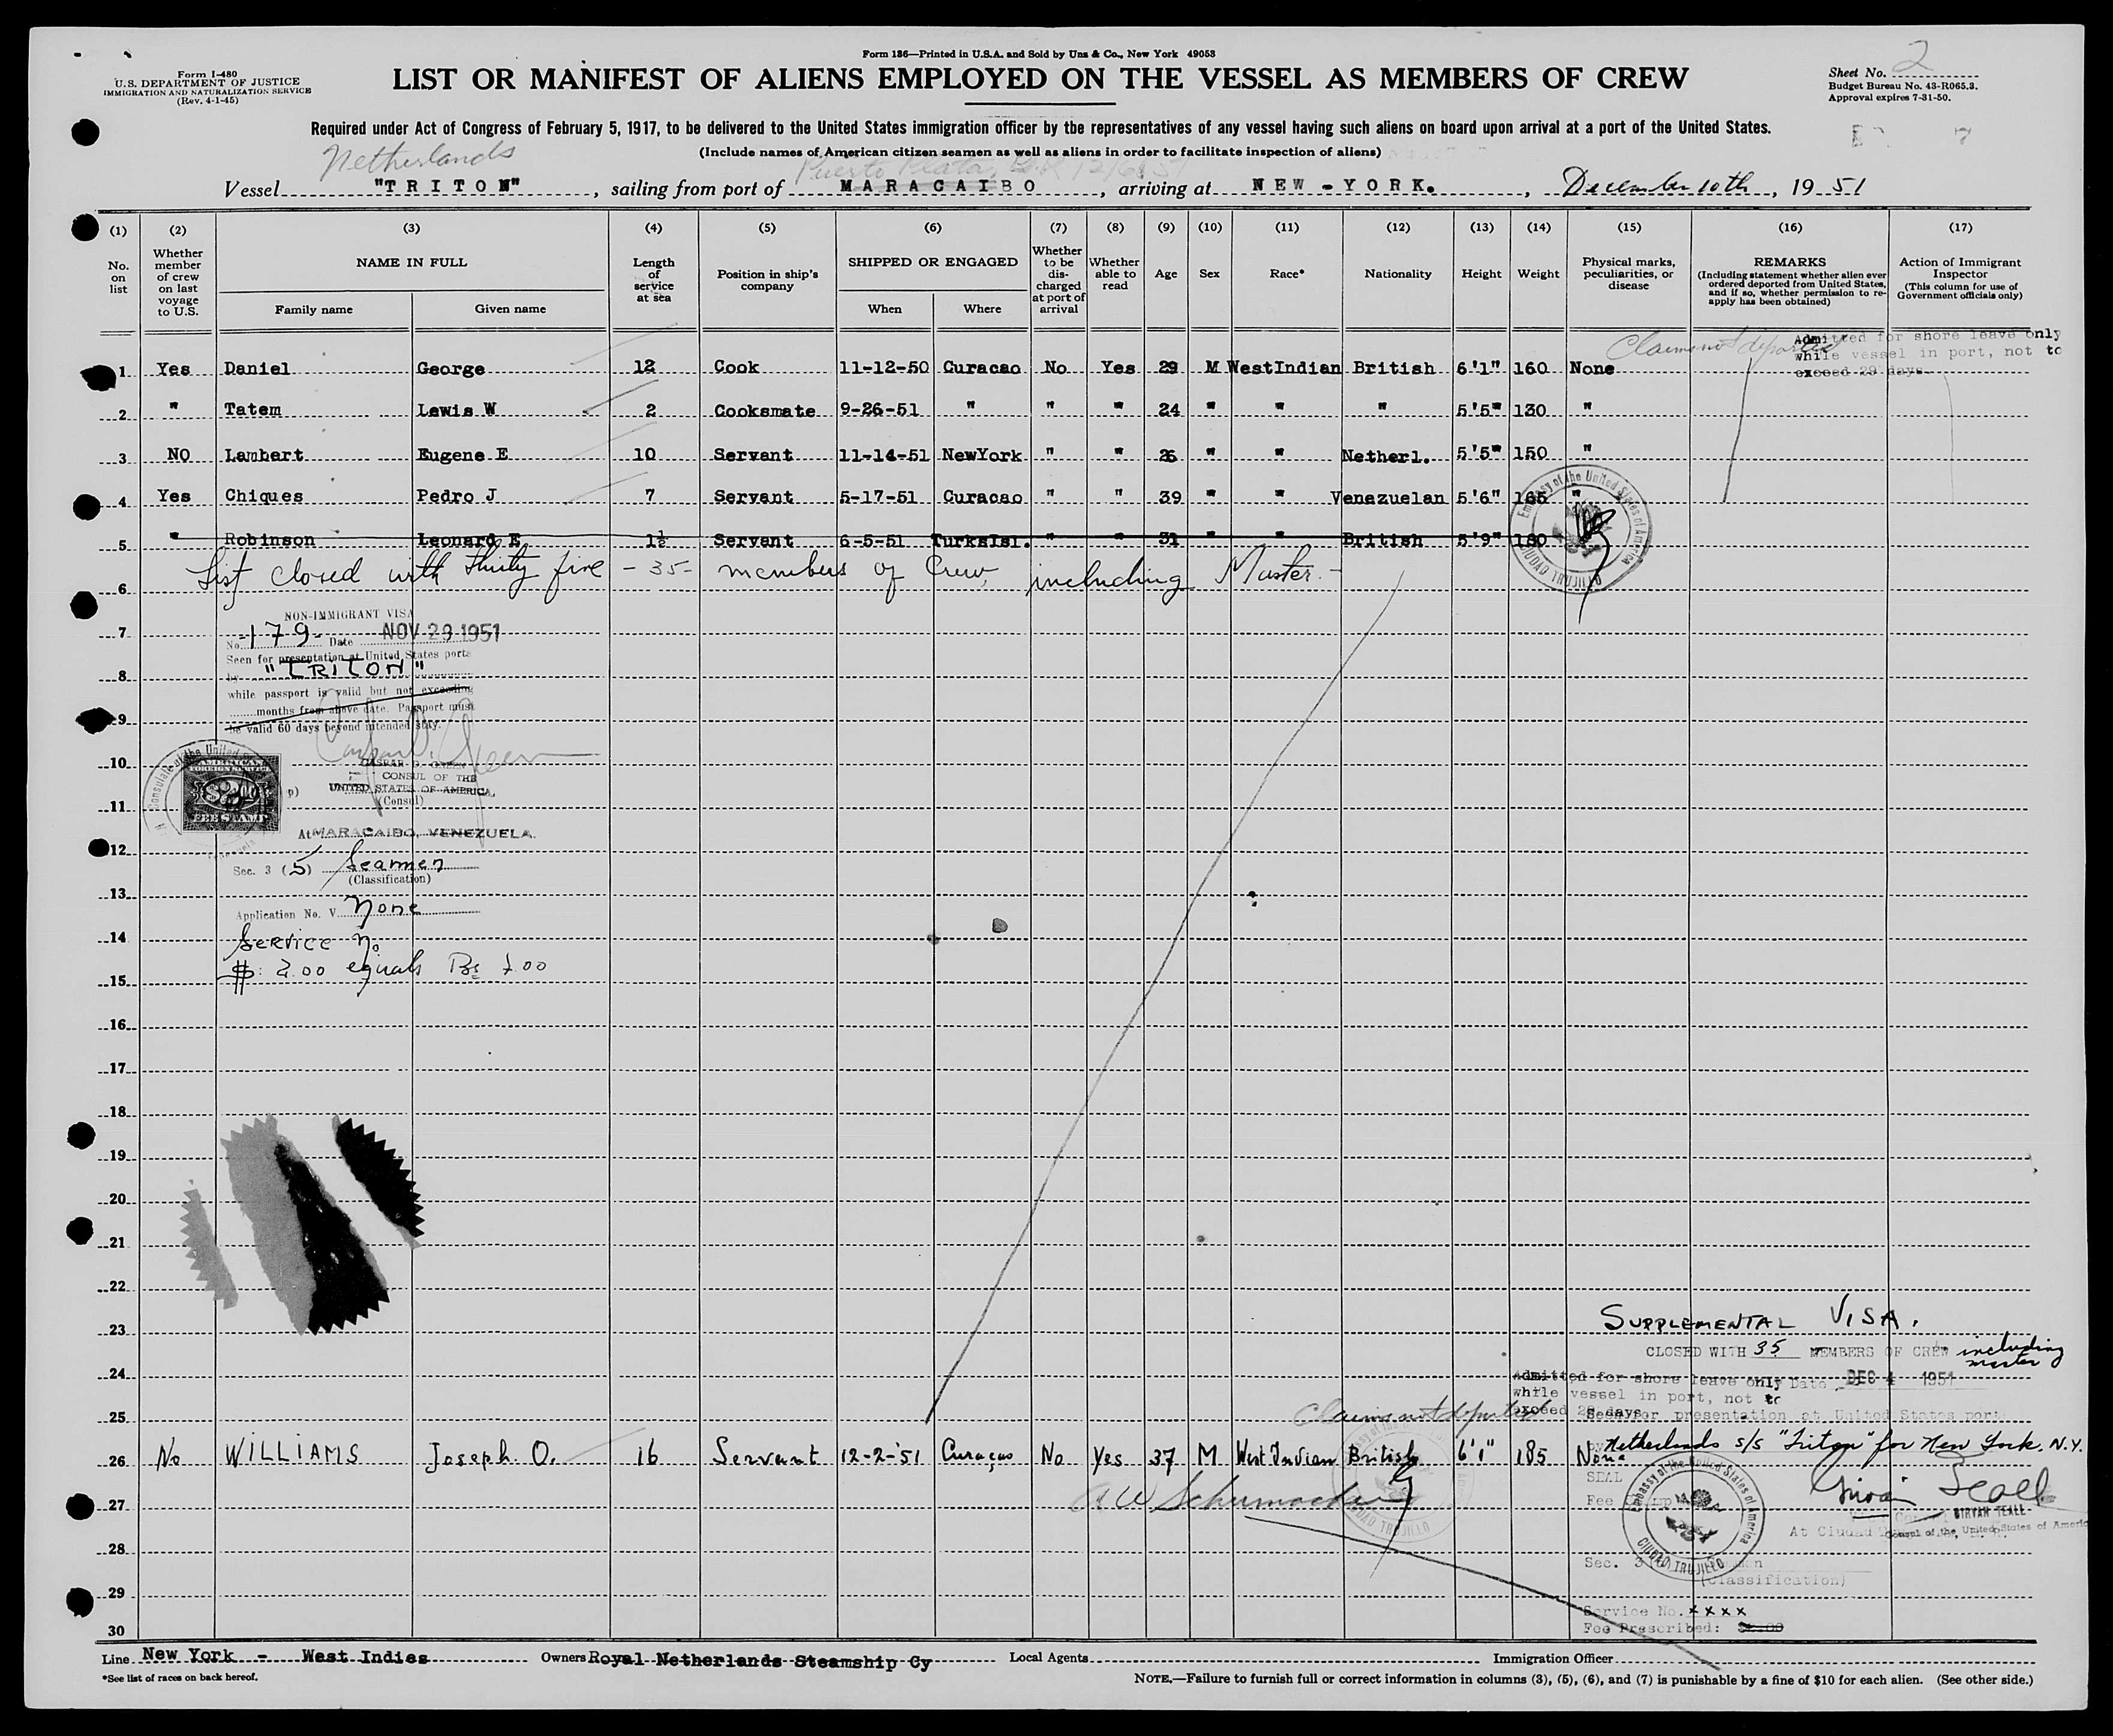 Form 136—Printed in U.S.A. and Sold by Unz & Co., New York 49053
Form I-480
U.S. DEPARTMENT OF JUSTICE
IMMIGRATION AND NATURALIZATION SERVICE
(Rev. 4-1-45)
LIST OR MANIFEST OF ALIENS EMPLOYED ON THE VESSEL AS MEMBERS OF CREW
Sheet No. 2
Budget Bureau No. 43-R065.3.
Approval expires 7-31-50.
Required under Act of Congress of February 5, 1917, to be delivered to the United States immigration officer by the representatives of any vessel having such aliens on board upon arrival at a port of the United States.
(Include names of American citizen seamen as well as aliens in order to facilitate inspection of aliens)
Netherlands
Puerto Plata
Vessel "TRITON", sailing from port of MARACAIBO, arriving at NEW-YORK., December 10th, 1951
(1) No. on list
(2) Whether member of crew on last voyage to U.S.
(3) NAME IN FULL Family name Given name
(4) Length of service at sea
(5) Position in ship's company
(6) SHIPPED OR ENGAGED When Where
(7) Whether to be discharged at port of arrival
(8) Whether able to read
(9) Age
(10) Sex
(11) Race*
(12) Nationality
(13) Height
(14) Weight
(15) Physical marks, peculiarities, or disease
(16) REMARKS (Including statement whether alien ever ordered deported from United States, and if so, whether permission to re-apply has been obtained)
(17) Action of Immigrant Inspector (This column for use of Government officials only)
Claims not deported
Admitted for shore leave only
while vessel in port, not to
exceed 29 days
1 Yes Daniel George 12 Cook 11-12-50 Curacao No Yes 29 M WestIndian British 6'1" 160 None
2 " Tatem Lewis W 2 Cooksmate 9-26-51 " " " 24 " " " 5'5" 130 "
3 NO Lambert Eugene E 10 Servant 11-14-51 NewYork " " 26 " " Netherl. 5'5" 150 "
4 Yes Chiques Pedro J 7 Servant 5-17-51 Curacao " " 39 " " Venezuelan 5'6" 165 "
5 " Robinson Leonard E 1½ Servant 6-5-51 TurksIsl. " " 31 " " British 5'9" 180
Embassy of the United States of America
CIUDAD TRUJILLO
List closed with thirty five - 35 - members of Crew, including Master. -
6
7
8
9
10
11
12
13
14
15
16
17
18
19
20
21
22
23
24
25
NON-IMMIGRANT VISA
No. -179- Date NOV 29 1951
Seen for presentation at United States ports
by "TRITON"
while passport is valid but not exceeding
months from above date. Passport must
be valid 60 days beyond intended stay.
AMERICAN
FOREIGN SERVICE
FEE STAMP
CASPAR D. GREEN
CONSUL OF THE
UNITED STATES OF AMERICA,
(Consul)
At MARACAIBO, VENEZUELA.
Sec. 3 (5) Seamen
(Classification)
Application No. V None
Service No
$: 2.00 equals Bs 7.00
SUPPLEMENTAL VISA.
CLOSED WITH 35 MEMBERS OF CREW including master
Admitted for shore leave only
while vessel in port, not to
exceed 29 days
Date DEC 4 1951
Seen for presentation at United States ports
Claims not deported
by Netherlands s/s "Triton" for New York. N.Y.
26 No WILLIAMS Joseph. O. 16 Servant 12-2-'51 Curaçao No Yes 37 M West Indian British 6'1" 185 None
27
28
29
30
SEAL
Fee
Embassy of the United States of America
CIUDAD TRUJILLO
Girvan Teall
GIRVAN TEALL
Consul of the United States of America
At Ciudad
Sec. 3
(Classification)
Service No. xxxx
Fee Prescribed:
Line New York - West Indies Owners Royal Netherlands Steamship Cy Local Agents Immigration Officer
*See list of races on back hereof.
NOTE.—Failure to furnish full or correct information in columns (3), (5), (6), and (7) is punishable by a fine of $10 for each alien. (See other side.)